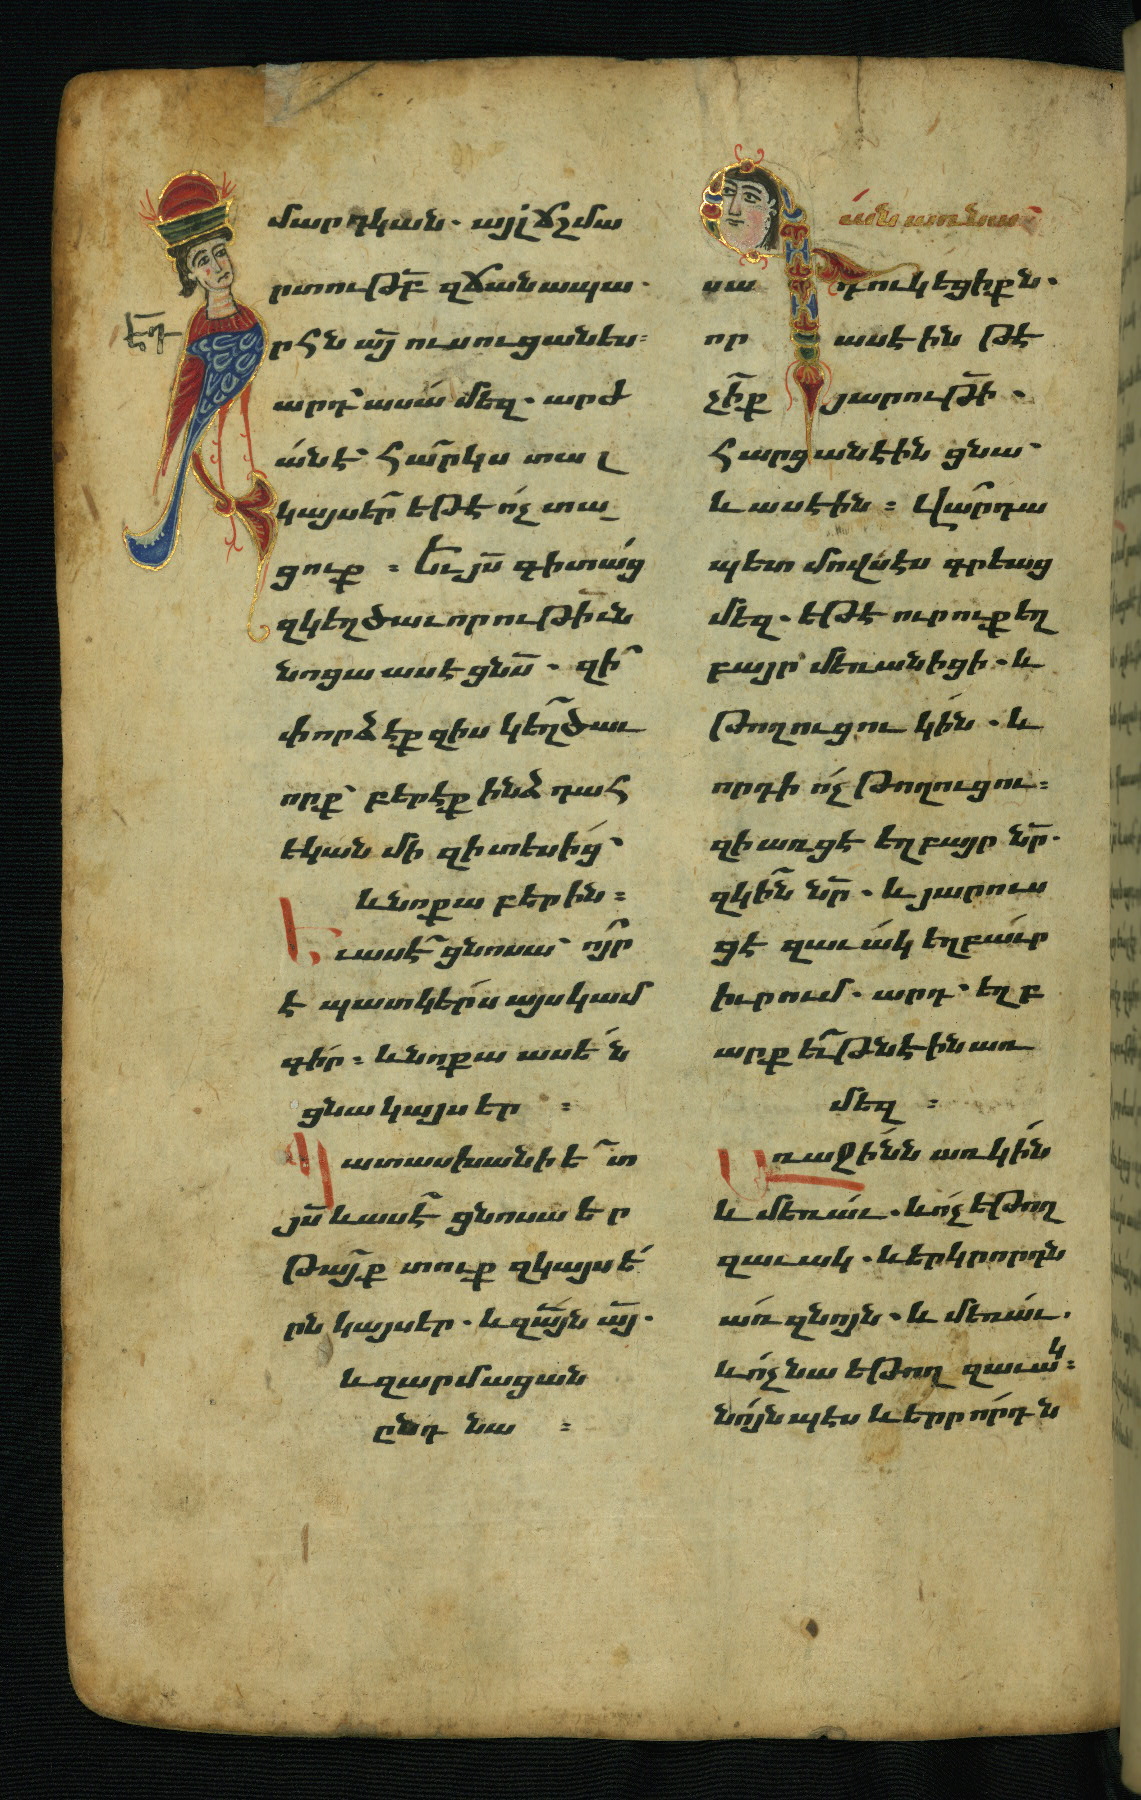 մարդկան. այլ ճշմա
րտութբ զճանապա.
եդ
րհն այ ուսուցանես:
արդ՝ ասա մեզ. արժ
անէ՝ հարկս տալ
կայսեր եթէ ոչ տա_
ցուք : Եւ յս գիտաց
զկեղծաւորութիւն
նոցա ասէ ցնս. զի՞
փորձէք զիս կեղծաւ
որք՝ բերէք ինձ դահ
եկան մի զի տեսից՝
և նոքա բերին:
Եւ ասէ ցնոսա՝ ոյր
է պատկերս այս կամ
գիր: և նոքա ասեն
ցնա կայսեր :
Պատասխանի ետ
յս և ասէ ցնոսա եր
թայք տուք զկայսե
րն կայսեր. և զայն այ.
և զարմացան
ընդ նա :
ան առ նա
սադուկեցիքն.
որ ասէին թէ
չիք յարութի.
հարցանէին ցնա՝
և ասէին : Վարդա
պետ մովսէս գրեաց
մեզ. եթէ ուրուք եղ
բայր մեռանիցի. և
թողուցու կին. և
որդի ոչ թողուցու:
զի առցէ եղբայր նր.
զկին նր. և յարուս
ցէ զաւակ եղբաւր
իւրում. արդ՝ եղբ
արք եւթն էին առ
մեզ :
Առաջինն առ կին
և մեռաւ. և ոչ եթող
զաւակ. և երկրորդն
առ զնոյն. և մեռաւ.
և ոչ նա եթող զաւակ:
նոյնպէս և երրորդն